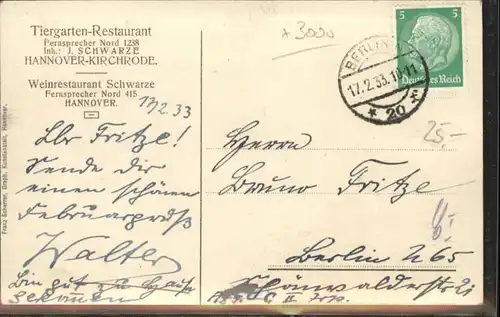 Tiergarten-Restaurant
Fernsprecher Nord 1238
Inh.: J. SCHWARZE
HANNOVER-KIRCHRODE.
Weinrestaurant Schwarze
Fernsprecher Nord 415
HANNOVER.
17/2.33
Lbr Fritze!
Sende dir
einen schönen
Februargruß
Walter
Bin gut zu Hause
gekommen
+ 3000
5 5
Deutsches Reich
BERLIN
17.2.33.10-11
* 20
25,-
Herrn
Bruno Fritze
8,-
Berlin N65
Schönwalderstr. 21
II